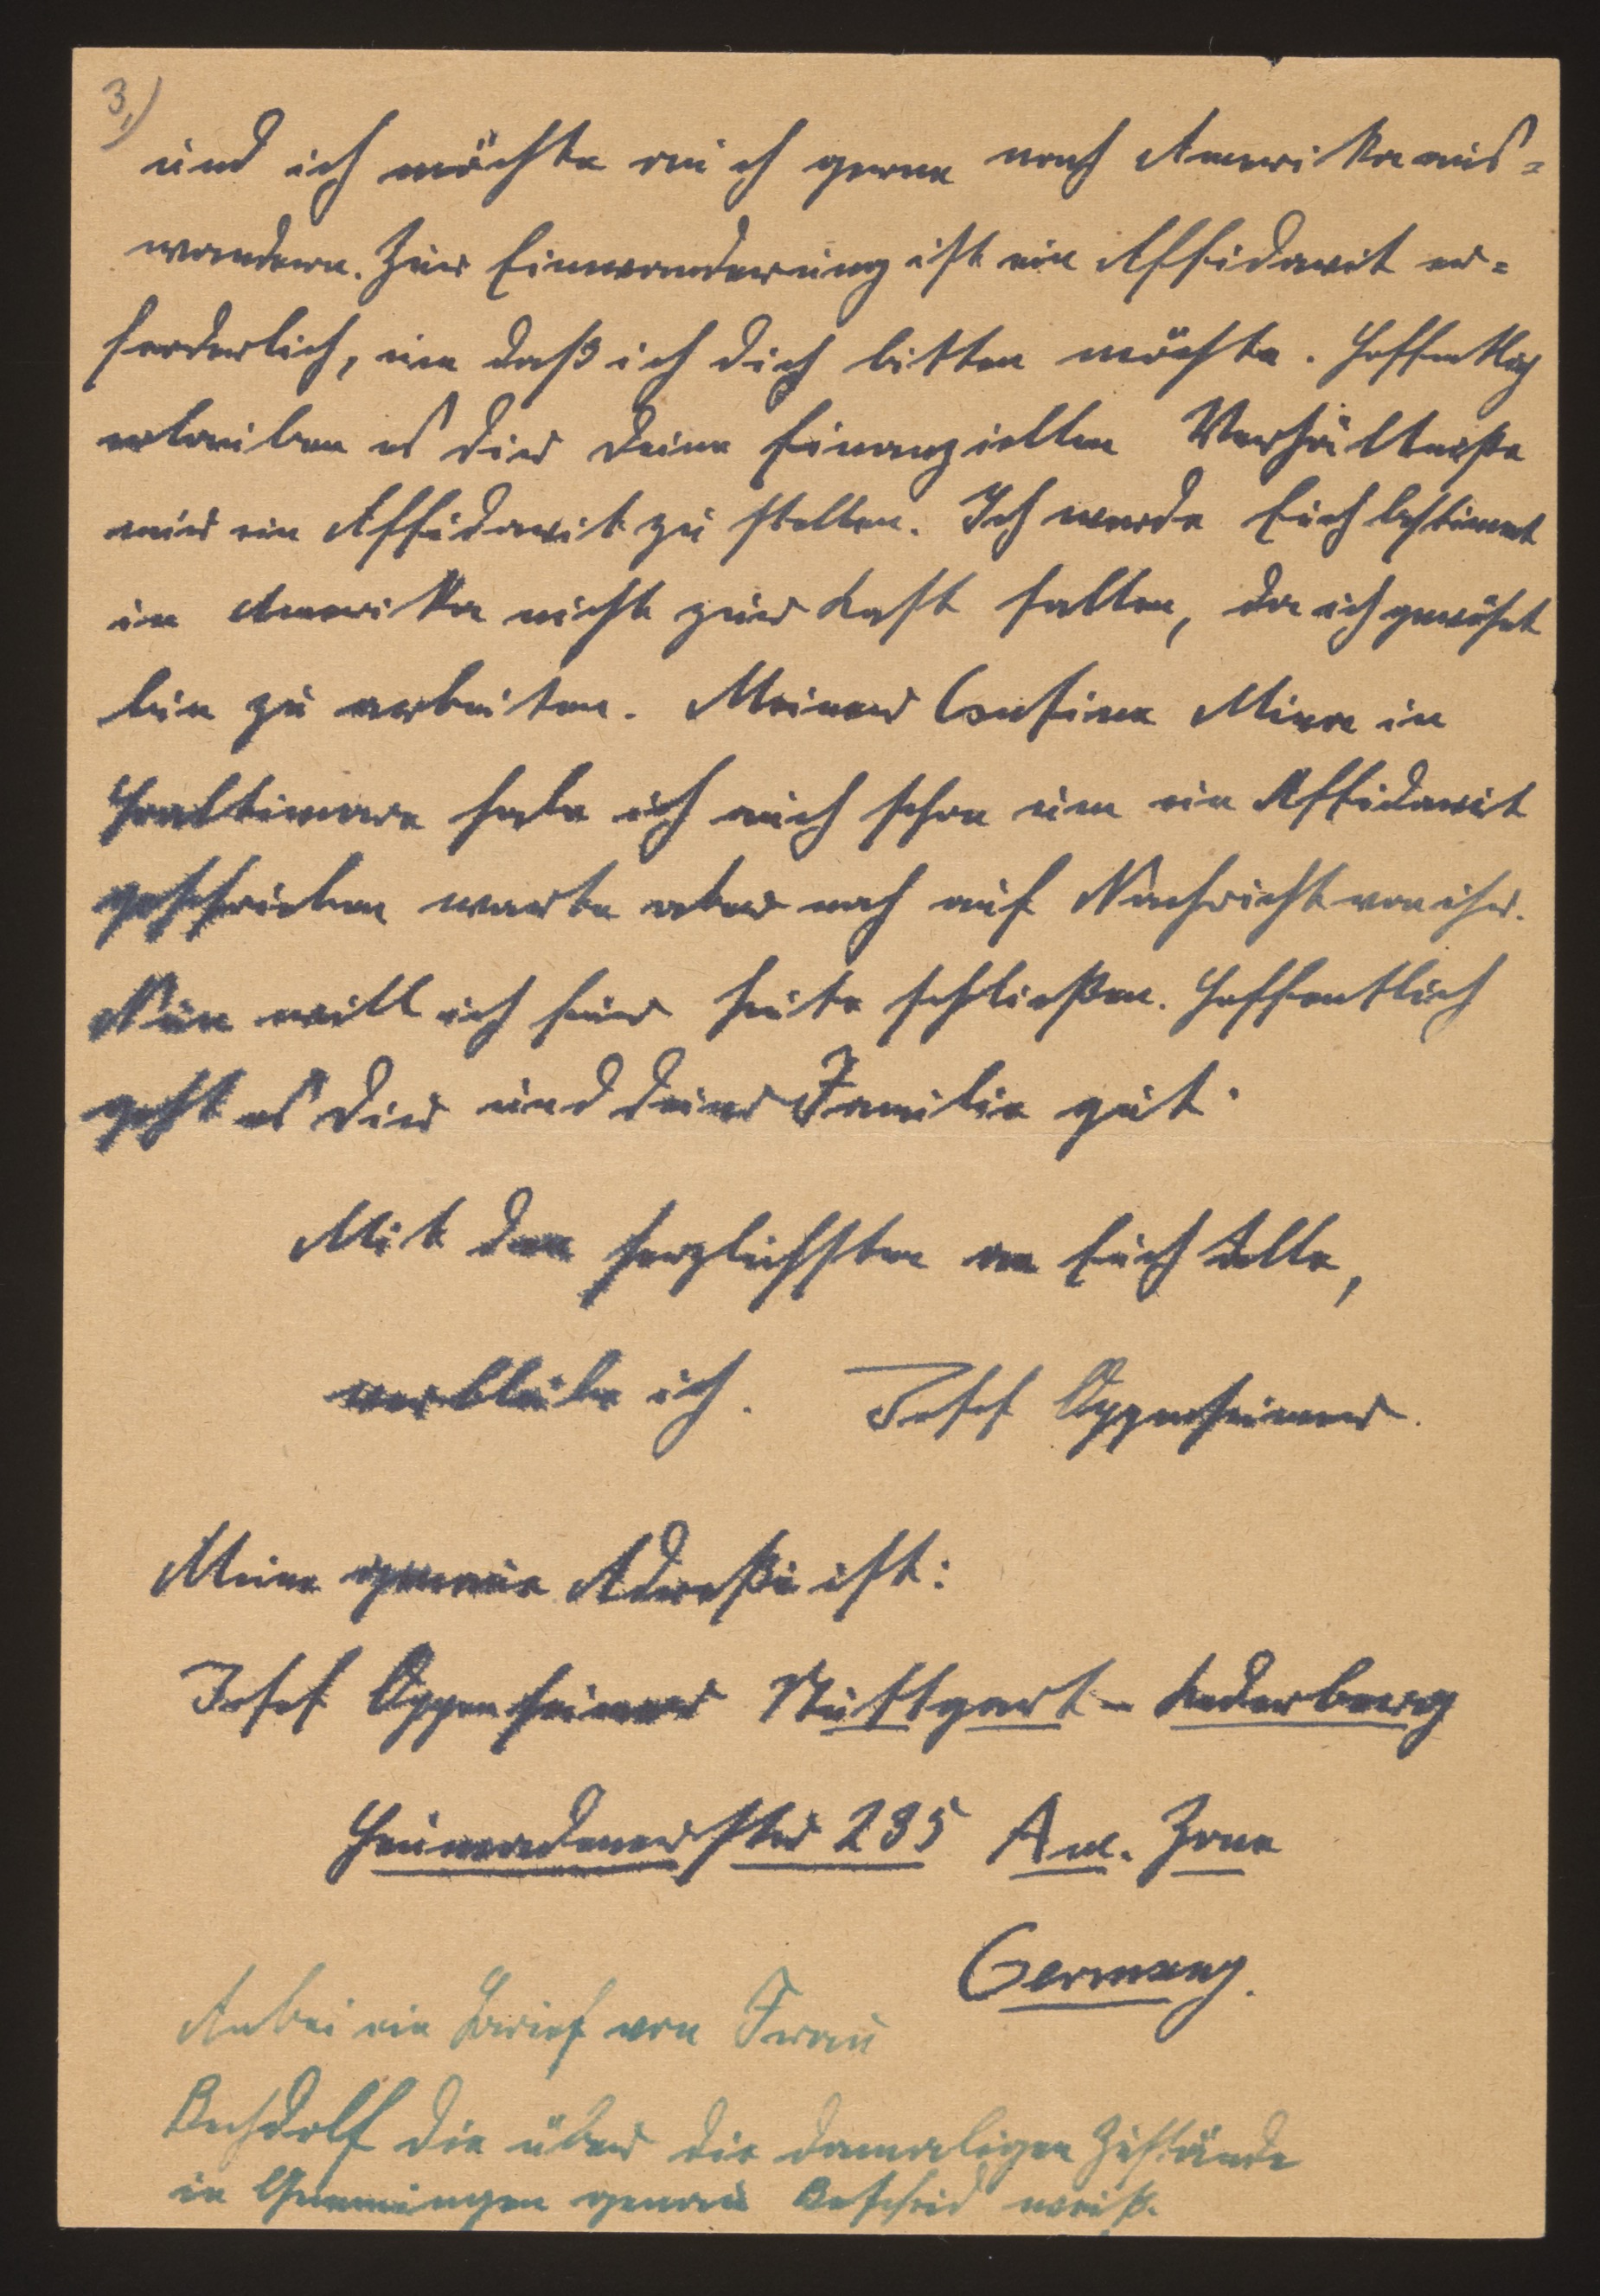 3.)
und ich möchte auch gerne nach Amerika aus=
wandern. Zur Einwanderung ist ein Affidavit er=
forderlich, um daß ich dich bitten möchte. Hoffentlich
erlauben es dir deine finanziellen Verhältnisse
mir ein Affidavit zu stellen. Ich werde Euch bestimmt
in Amerika nicht zur Last fallen, da ich gewöhnt
bin zu arbeiten. Meiner Cousine Mina in
Baltimore habe ich auch schon um ein Affidavit
geschrieben warte aber noch auf Nachricht von ihr.
Nun will ich für heute schließen. Hoffentlich
geht es dir und deiner Familie gut.
Mit den herzlichsten an Euch alle,
verbleibe ich. Josef Oppenheimer.
Meine genaue Adreße ist:
Josef Oppenheimer Stuttgart - Lederberg
str 235 Am. Zone
Germany.
Anbei ein Brief von Frau
die über die damaligen Zustände
in Gemmingen genau Bescheid weiß.